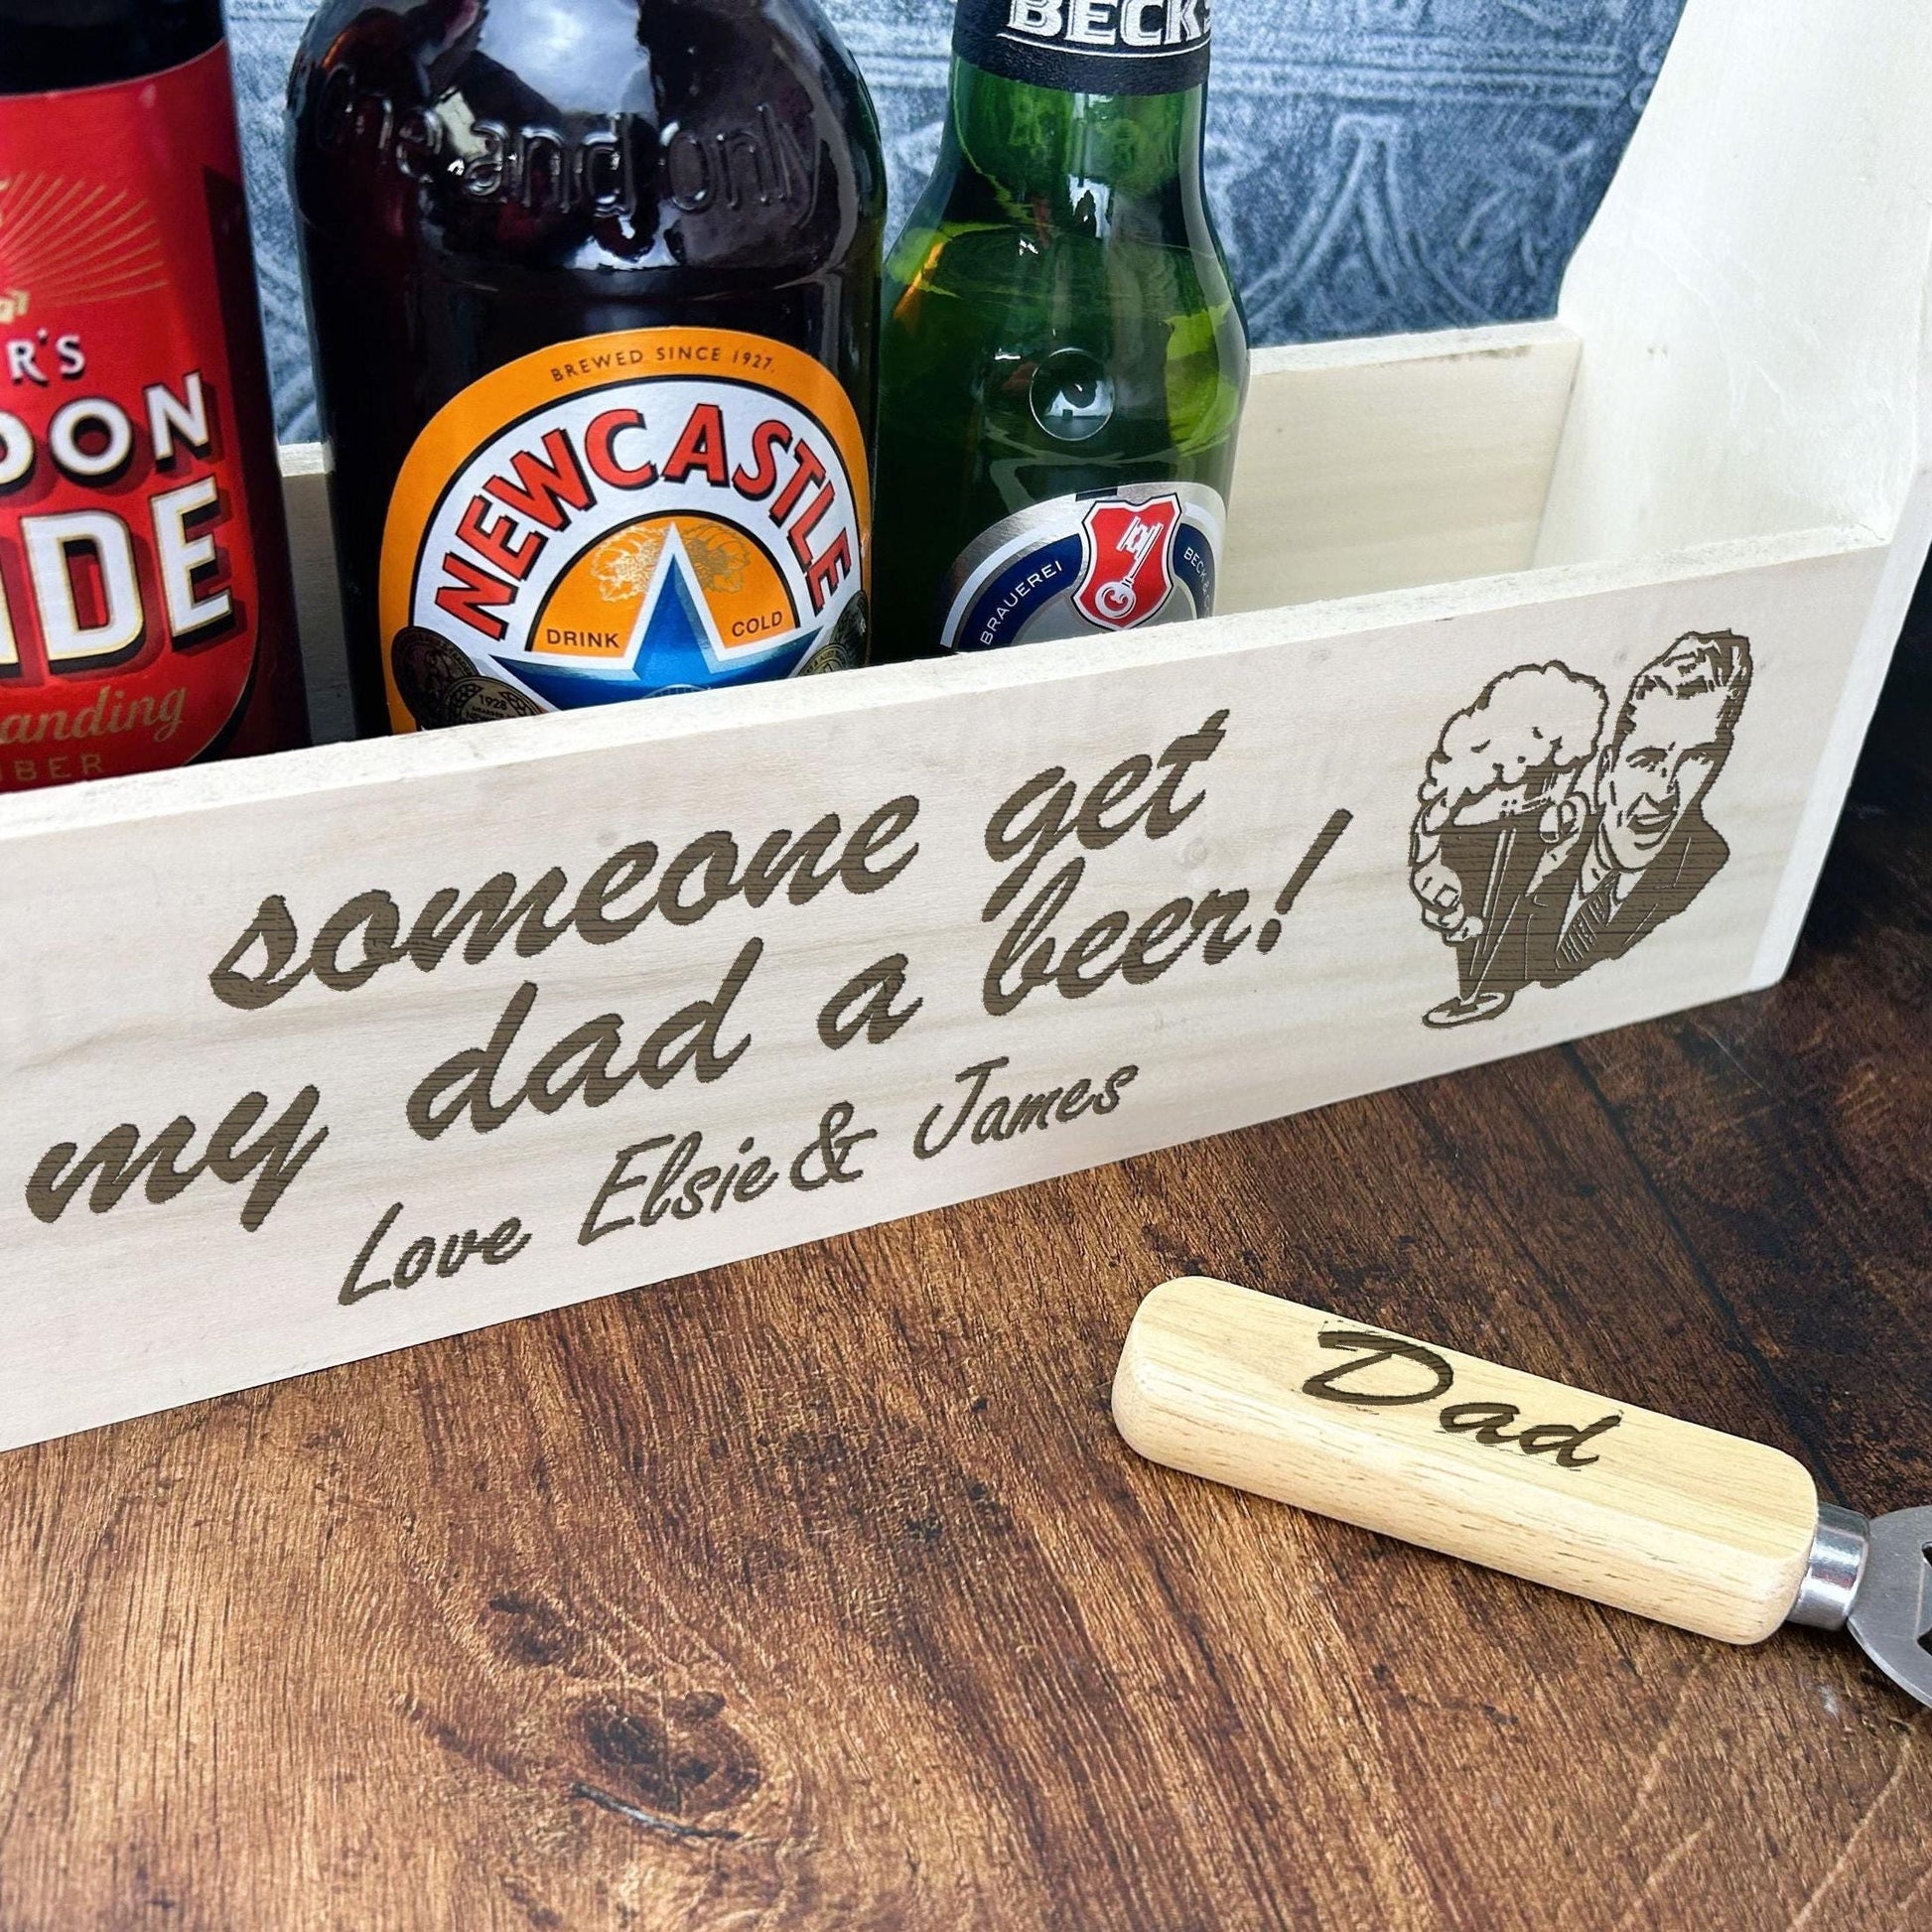 BECK'S
One and only
R'S
DON
IDE
anding
BER
BREWED SINCE 1927.
NEWCASTLE
DRINK COLD
1928
BRAUEREI BECK &
someone get
my dad a beer!
Love Elsie & James
Dad